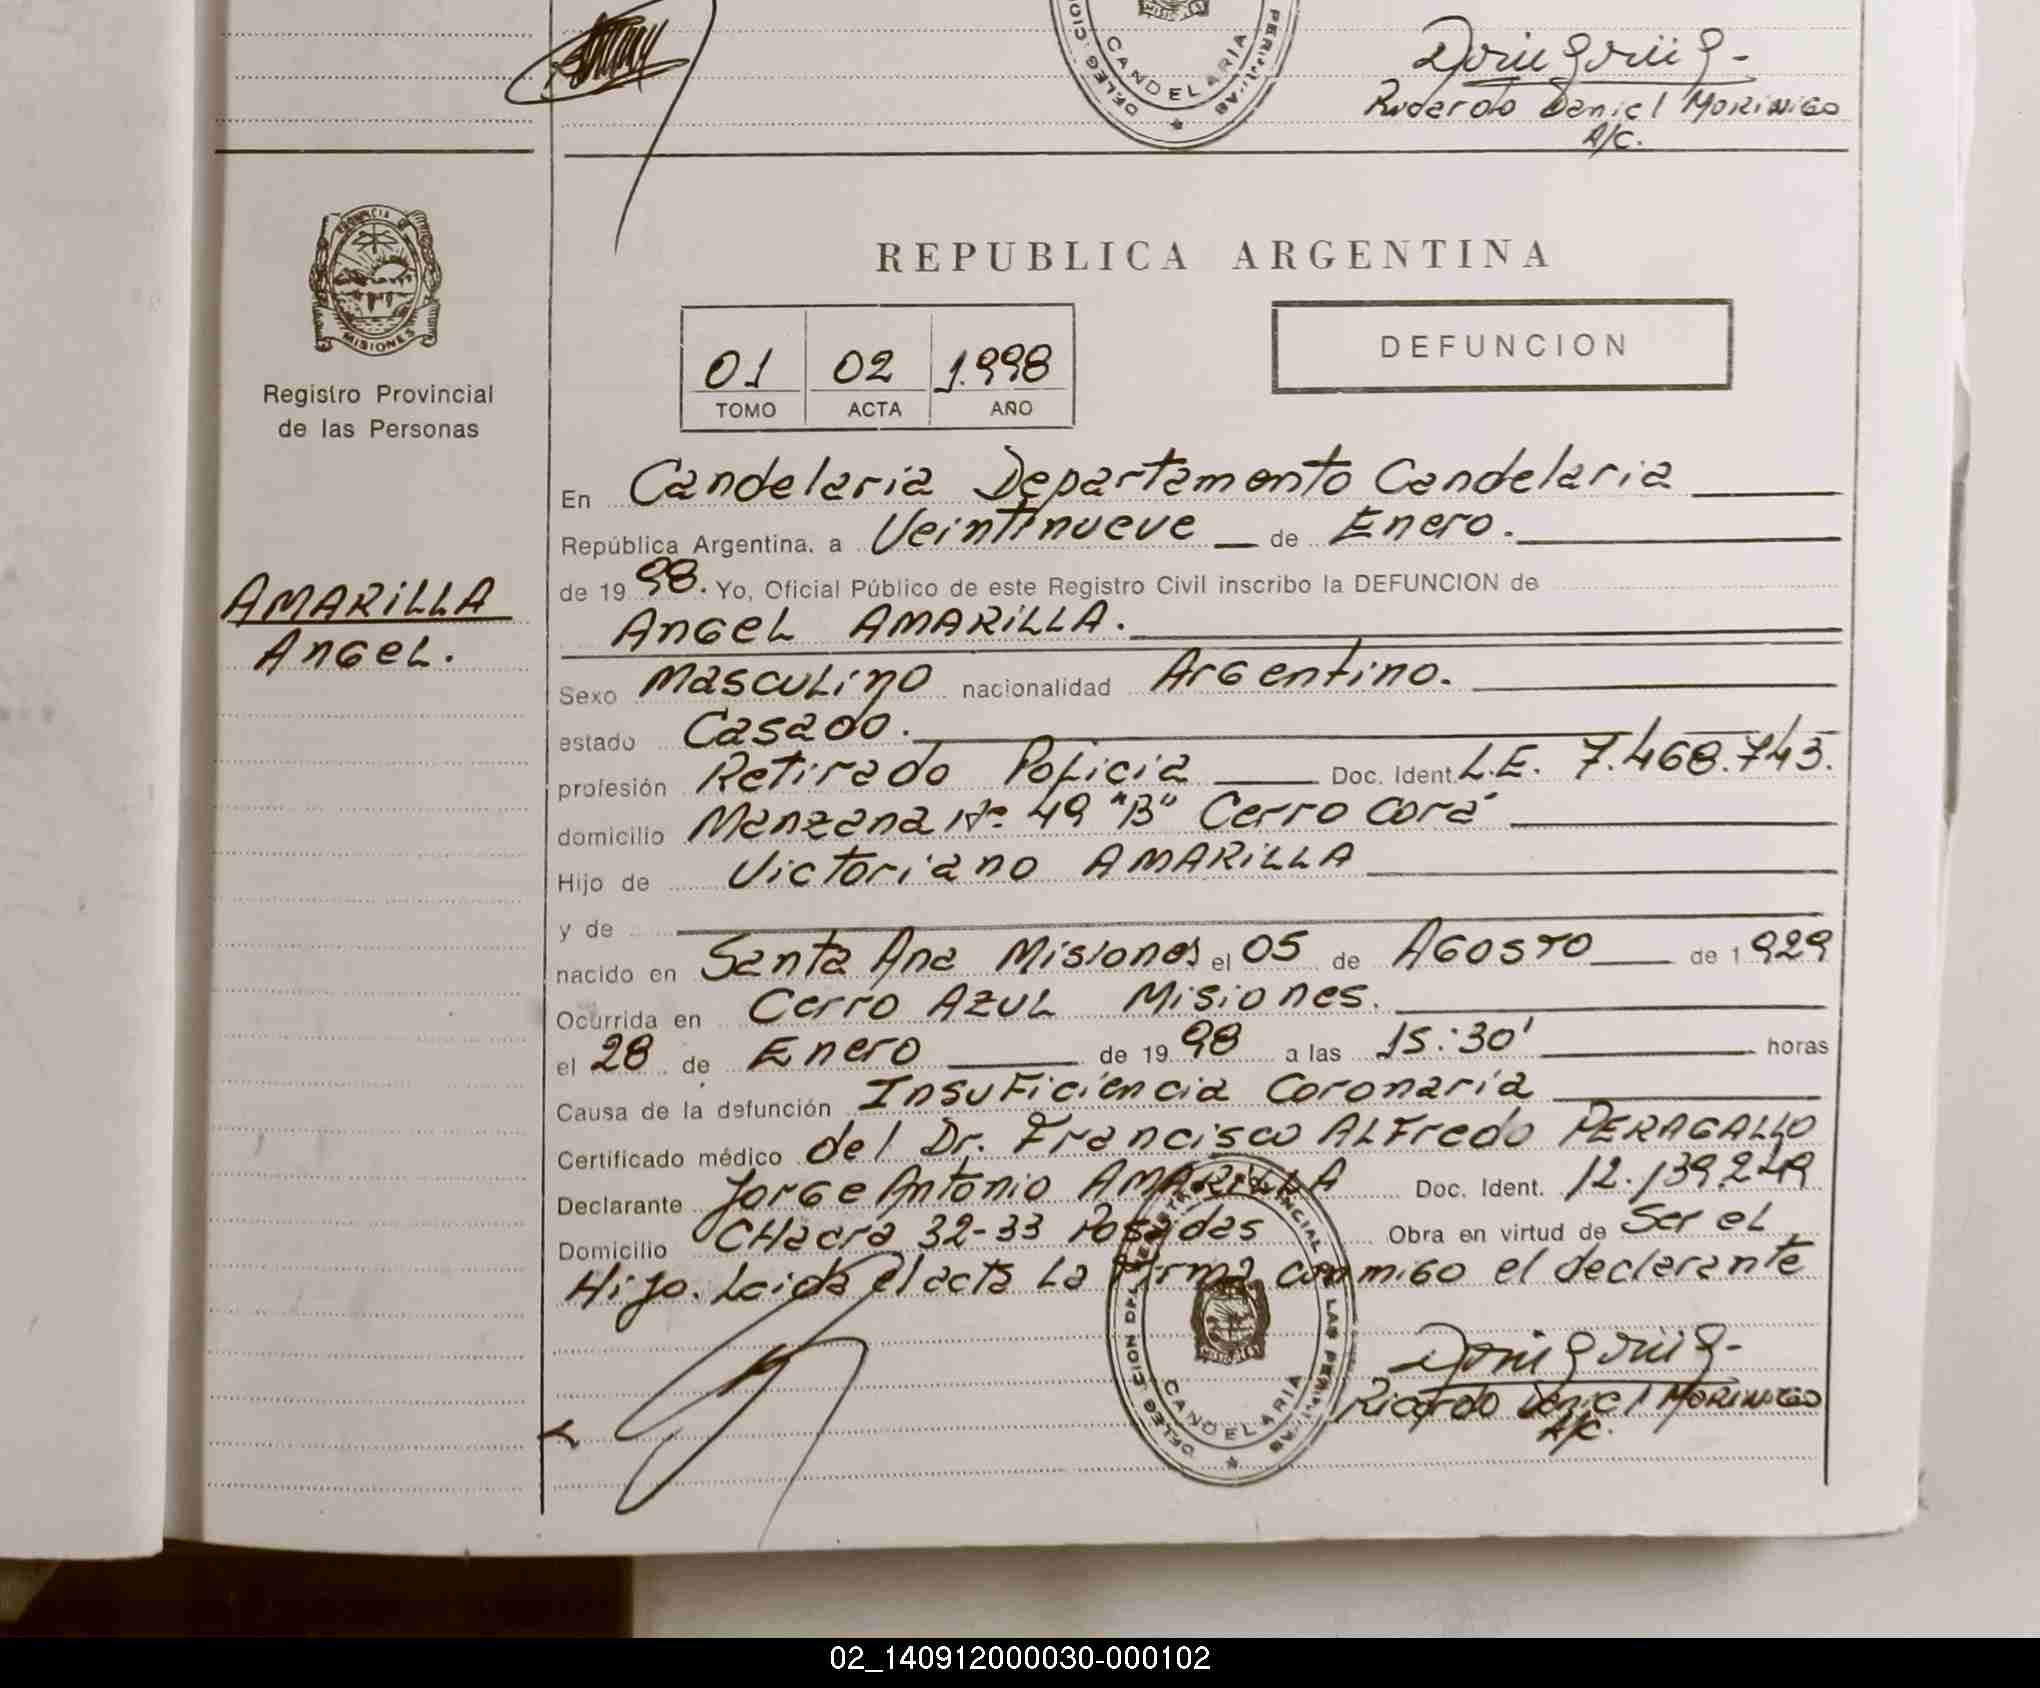 DELEGACION
CANDELARIA
Ricardo Daniel MORINIGO
A/C.
PROVINCIA DE
MISIONES
Registro Provincial
de las Personas
REPUBLICA ARGENTINA
01 02 1.998
TOMO ACTA AÑO
DEFUNCION
En Candelaria Departamento Candelaria
República Argentina, a Veintinueve de Enero.
de 19 98. Yo, Oficial Público de este Registro Civil inscribo la DEFUNCION de
AMARILLA
ANGEL.
ANGEL AMARILLA.
Sexo Masculino nacionalidad Argentino.
estado Casado.
profesión Retirado Policia Doc. Ident. L.E. 7.468.743.
domicilio Manzana Nº 49 "B" Cerro Corá
Hijo de Victoriano AMARILLA
y de
nacido en Santa Ana Misiones el 05 de AGOSTO de 1929
Ocurrida en Cerro AZUL Misiones.
el 28 de Enero de 19 98 a las 15:30' horas
Causa de la defunción Insuficiencia Coronaria
Certificado médico del Dr. Francisco ALFredo PERAGALLO
Declarante Jorge Antonio AMARILLA Doc. Ident. 12.139.249
Domicilio CHacra 32-33 Posadas Obra en virtud de Ser el
Hijo. Leida el acta La Firma conmigo el declarante
CANDELARIA
Ricardo Daniel MORINIGO
A/C.
02_140912000030-000102